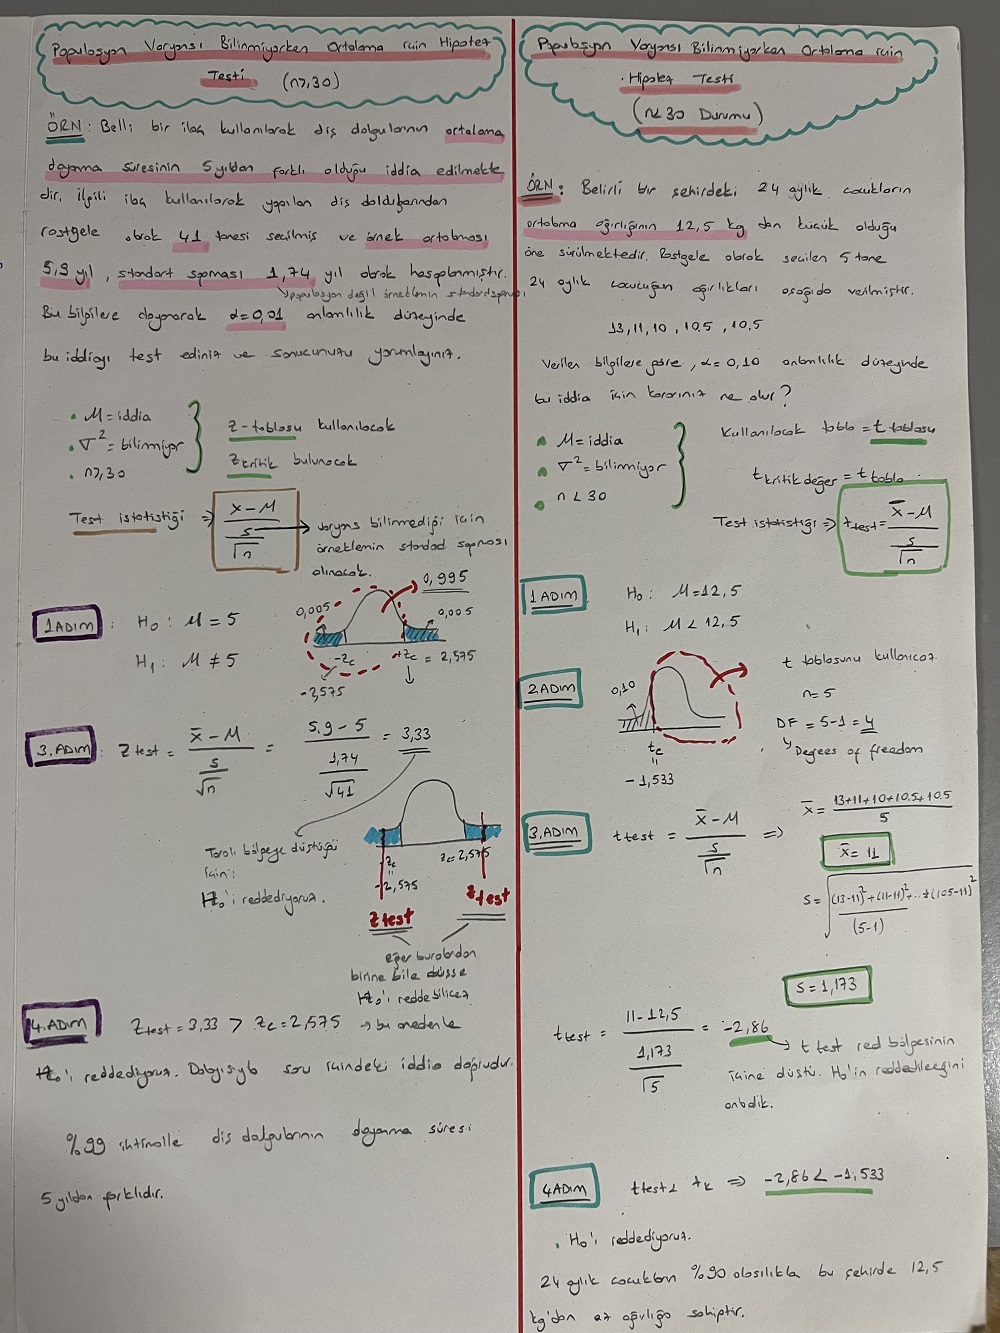 Populasyon Varyansı Bilinmiyorken Ortalama için Hipotez
Testi (n≥30)
ÖRN: Belli bir ilaç kullanılarak diş dolgularının ortalama
dayanma süresinin 5 yıldan farklı olduğu iddia edilmekte
dir. ilgili ilaç kullanılarak yapılan diş dolgularından
rastgele olarak 41 tanesi seçilmiş ve örnek ortalması
5,9 yıl, standart sapması 1,74 yıl olarak hesaplanmıştır.
↳ populasyon değil örneklemin standard sapması
Bu bilgilere dayanarak α=0,01 anlamlılık düzeyinde
bu iddiayı test ediniz ve sonucunuzu yorumlayınız.
• M = iddia
• σ² = bilinmiyor
• n≥30
z-tablosu kullanılacak
zkritik bulunacak
Test istatistiği ⇒ x-M / s/√n
→ varyans bilinmediği için
örneklemin standad sapması
alınacak.
1.ADIM : H₀ : M = 5
H₁ : M ≠ 5
0,995
0,005
0,005
-zc
+zc = 2,575
-2,575
3.ADIM : Ztest = x̄-M / s/√n = 5.9-5 / 1,74/√41 = 3,33
Taralı bölgeye düştüğü
için;
H₀'ı reddediyoruz.
-zc
=
-2,575
zc=2,575
Ztest
Ztest
eğer buralardan
birine bile düşse
H₀'ı reddebilicez
4.ADIM Ztest = 3,33 > Zc = 2,575 → bu nedenle
H₀'ı reddediyoruz. Dolayısıyla soru içindeki iddia doğrudur.
%99 ihtimalle diş dolgularının dayanma süresi
5 yıldan farklıdır.
Populasyon Varyansı Bilinmiyorken Ortalama için
• Hipotez Testi
(n<30 Durumu)
ÖRN: Belirli bir şehirdeki 24 aylık çocukların
ortalama ağırlığının 12,5 kg dan küçük olduğu
öne sürülmektedir. Rastgele olarak seçilen 5 tane
24 aylık çocuğun ağırlıkları aşağıda verilmiştir.
13, 11, 10, 10.5, 10.5
Verilen bilgilere göre, α=0,10 anlamlılık düzeyinde
bu iddia için kararınız ne olur?
• M = iddia
• σ² = bilinmiyor
• n < 30
Kullanılacak tablo = t tablosu
tkritik değer = t tablo
Test istatistiği ⇒ ttest = x̄-M / s/√n
1.ADIM H₀ : M=12,5
H₁ : M < 12,5
2.ADIM
0,10
tc
=
-1,533
t tablosunu kullanıcaz
n=5
DF = 5-1 = 4
↳ Degrees of freedom
3.ADIM ttest = x̄-M / s/√n ⇒ x̄ = 13+11+10+10.5+10.5 / 5
x̄ = 11
S = √(13-11)²+(11-11)²+...+(10.5-11)² / (5-1)
S = 1,173
ttest = 11-12,5 / 1,173/√5 = -2,86
→ t test red bölgesinin
içine düştü. H₀'ın reddedileceğini
anladık.
4.ADIM ttest < tk ⇒ -2,86 < -1,533
• H₀'ı reddediyoruz.
24 aylık çocukların %90 olasılıkla bu şehirde 12,5
kg'dan az ağırlığa sahiptir.